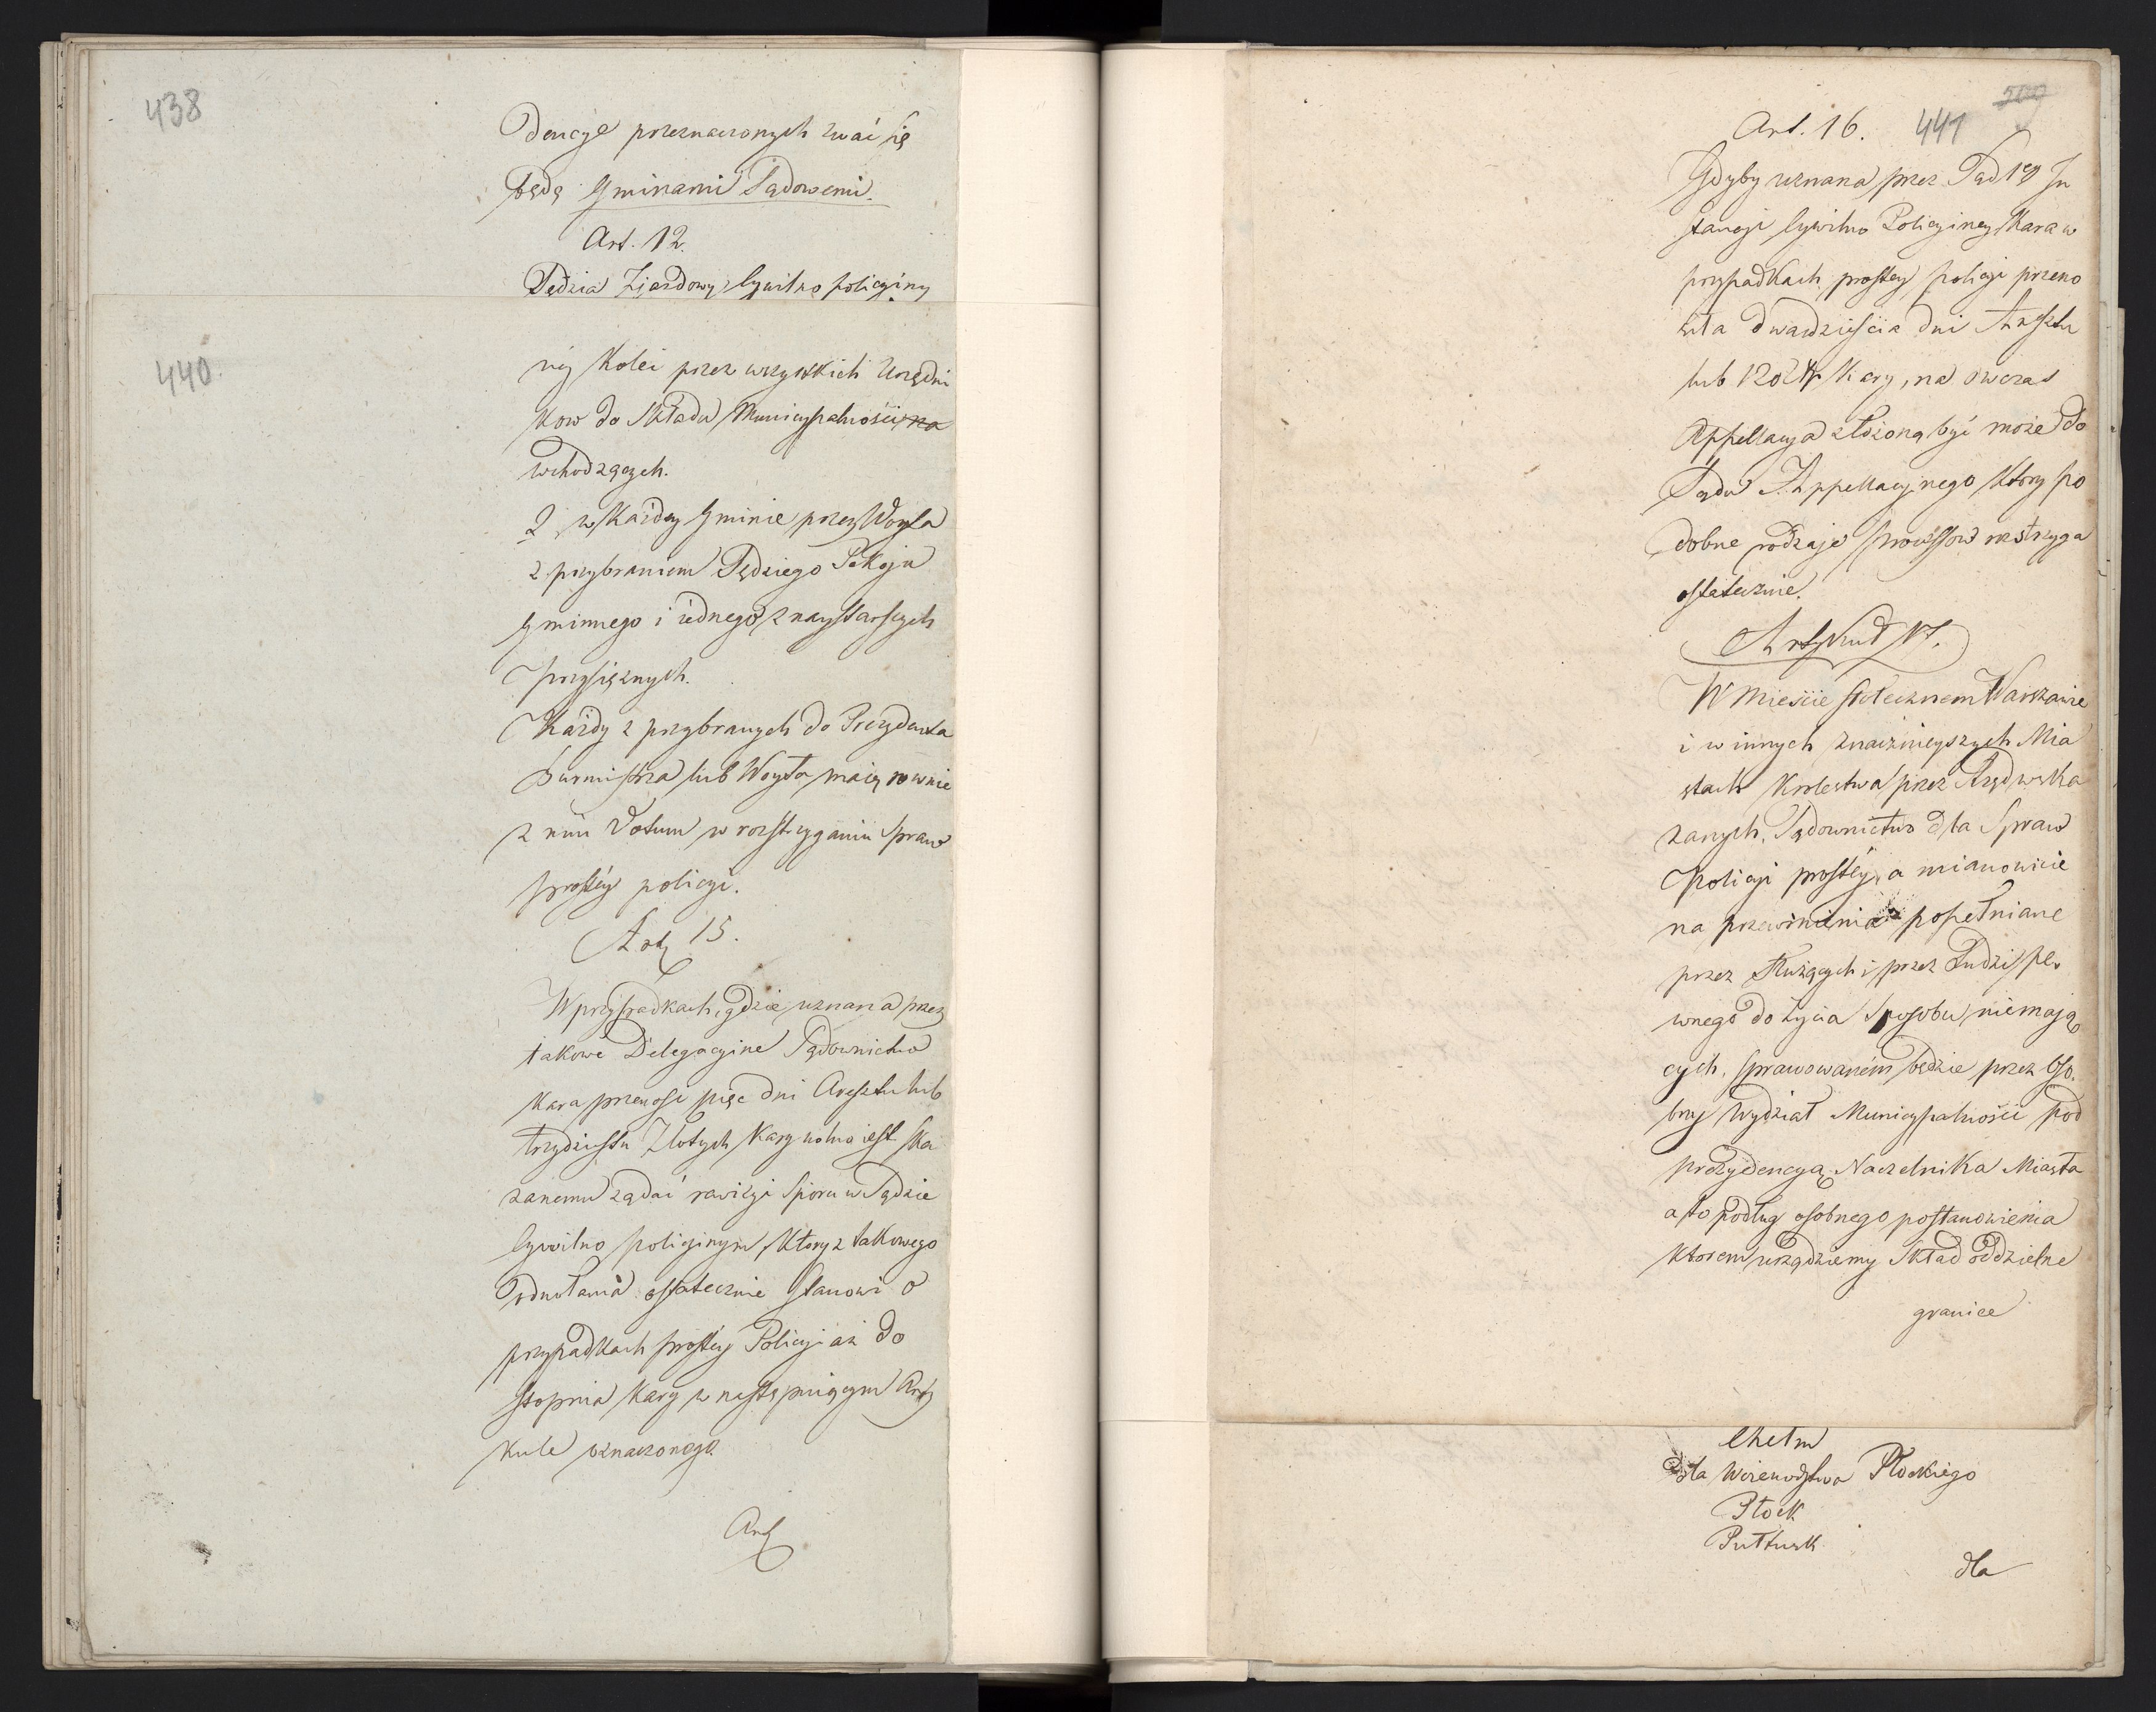 438
dencye przeznaczonych zwać się
będą Gminami Sądowemi.
Art. 12.
Sędzia Zjazdowy Cywilno policyiny
440.
néy Kolei przez wszystkich Urzędni
kow do Składu Municypalności na
wchodzących.
2 w każdey Gminie przez Woyta
z przybraniem Sędziego Pokoju
Gminnego i iednego z naystarszych
przysięznych.
Każdy z przybranych do Prezydenta
Burmistrza lub Woyta maią rownie
z nim Votum w rozstrzyganiu spraw
prostéy policyi.
Art 15.
W przypadkach, gdzie uznana przez
takowe Delegacyine Sądownictwo
kara przenosi pięc dni Aresztu lub
trzydziestu Złotych kary wolno iest ska
zanemu ządać rewizyi Sporu w Sądzie
Cywilno policyinym, ktory z takowego
odwołania ostatecznie stanowi o
przypadkach prostéy Policyi az do
stopnia kary w następuiącym Arty
kule oznaczonego
Art
509
441
Art. 16.
Gdyby uznana przez Sąd 1éy In
stancyi Cywilno Policyiney Kara w
przypadkach prostey policyi przeno
siła dwadzieścia dni Aresztu
lub 120 Zł kary, na owczas
Appellacya złożoną być może do
Sądu Appellacyjnego ktory po
dobne rodzaje processow rozstrzyga
ostatecznie.
Artykuł 17.
W Mieście stołecznem Warszawie
i w innych znaczniejszych Mia
stach Krolestwa przez Rząd wska
zanych, Sądownictwo dla Spraw
Policyi prostéy, a mianowicie
na przewinienia popełniane
przez Służących i przez Ludzi pe,
wnego do życia Sposobu niemają
cych, sprawowaném będzie przez Oso,
bny Wydział Municypalności pod
prezydencyą Naczelnika Miasta
a to podług osobnego postanowienia
ktorem urządziemy skład oddzielne
granice
Chełm
dla Woiewodztwa Płockiego
Płock
Pułtusk
dla